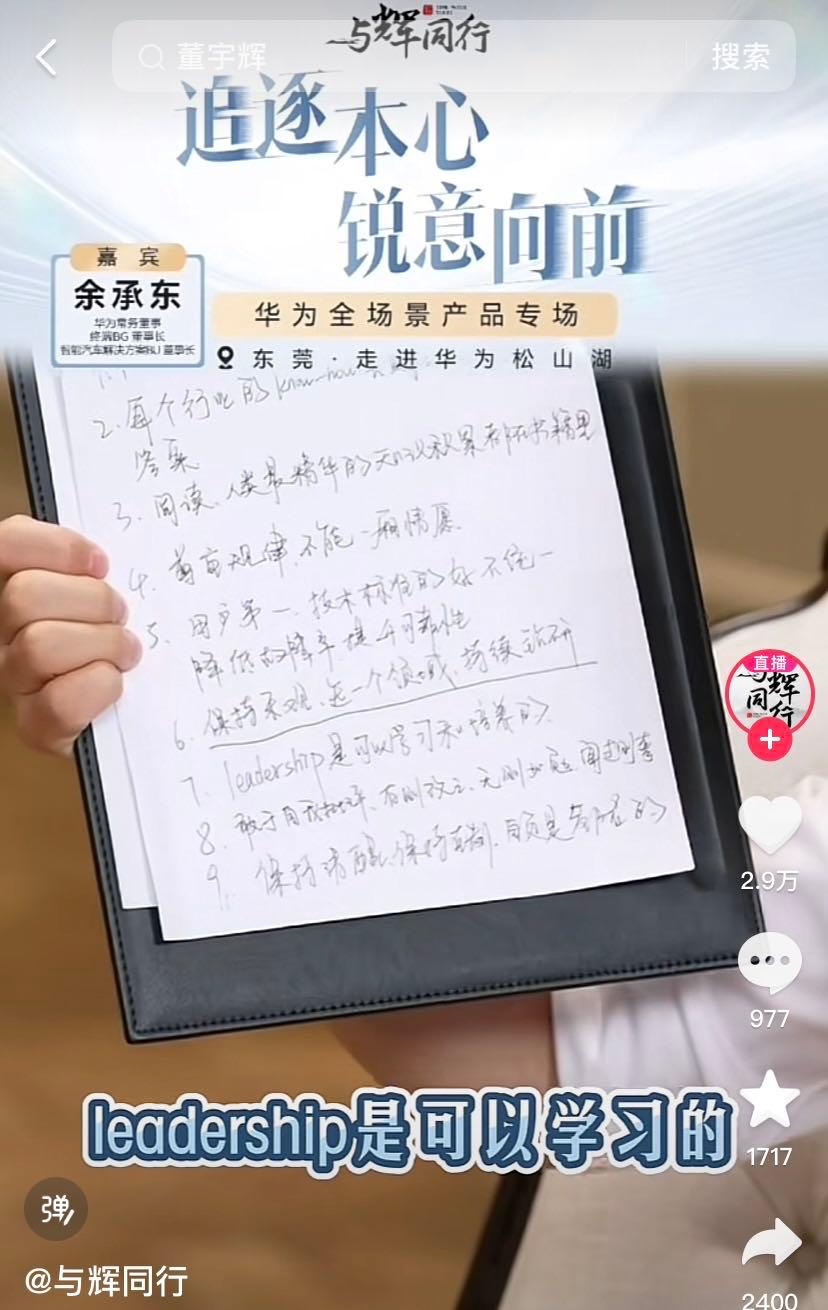 与辉同行
董宇辉
搜索
追逐本心
锐意向前
嘉宾
余承东
华为常务董事
终端BG 董事长
智能汽车解决方案BU 董事长
华为全场景产品专场
东莞·走进华为松山湖
2. 每个行业的know-how
答案
3. 阅读、人类最精华的知识积累都在书籍里
4. 尊重规律,不能一厢情愿.
5. 用户第一、技术标准的好不统一
降低故障率提升可靠性
6. 保持乐观、在一个领域,持续钻研
7. leadership是可以学习和培养的、
8. 敢于自我批评、有则改之、无则加勉、闻过则喜
9. 保持清醒、保持
直播
与辉同行
2.9万
977
1717
leadership是可以学习的
弹
@与辉同行
2400